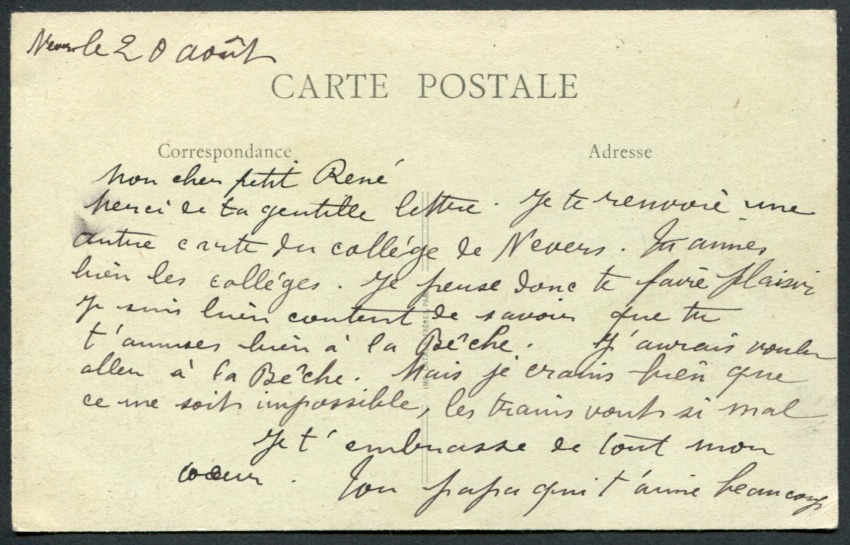 Nevers le 20 août
CARTE POSTALE
Correspondance
Adresse
Mon cher petit René
Merci de ta gentille lettre. Je te renvoie une
autre carte du collége de Nevers. Tu aimes
bien les colléges. Je pense donc te faire plaisir
Je suis bien content de savoir que tu
t'amuses bien à la Bêche. J'aurais voulu
aller à la Bêche. Mais je crains bien que
ce me soit impossible, les trains vont si mal
Je t'embrasse de tout mon
coeur. Ton papa qui t'aime beaucoup